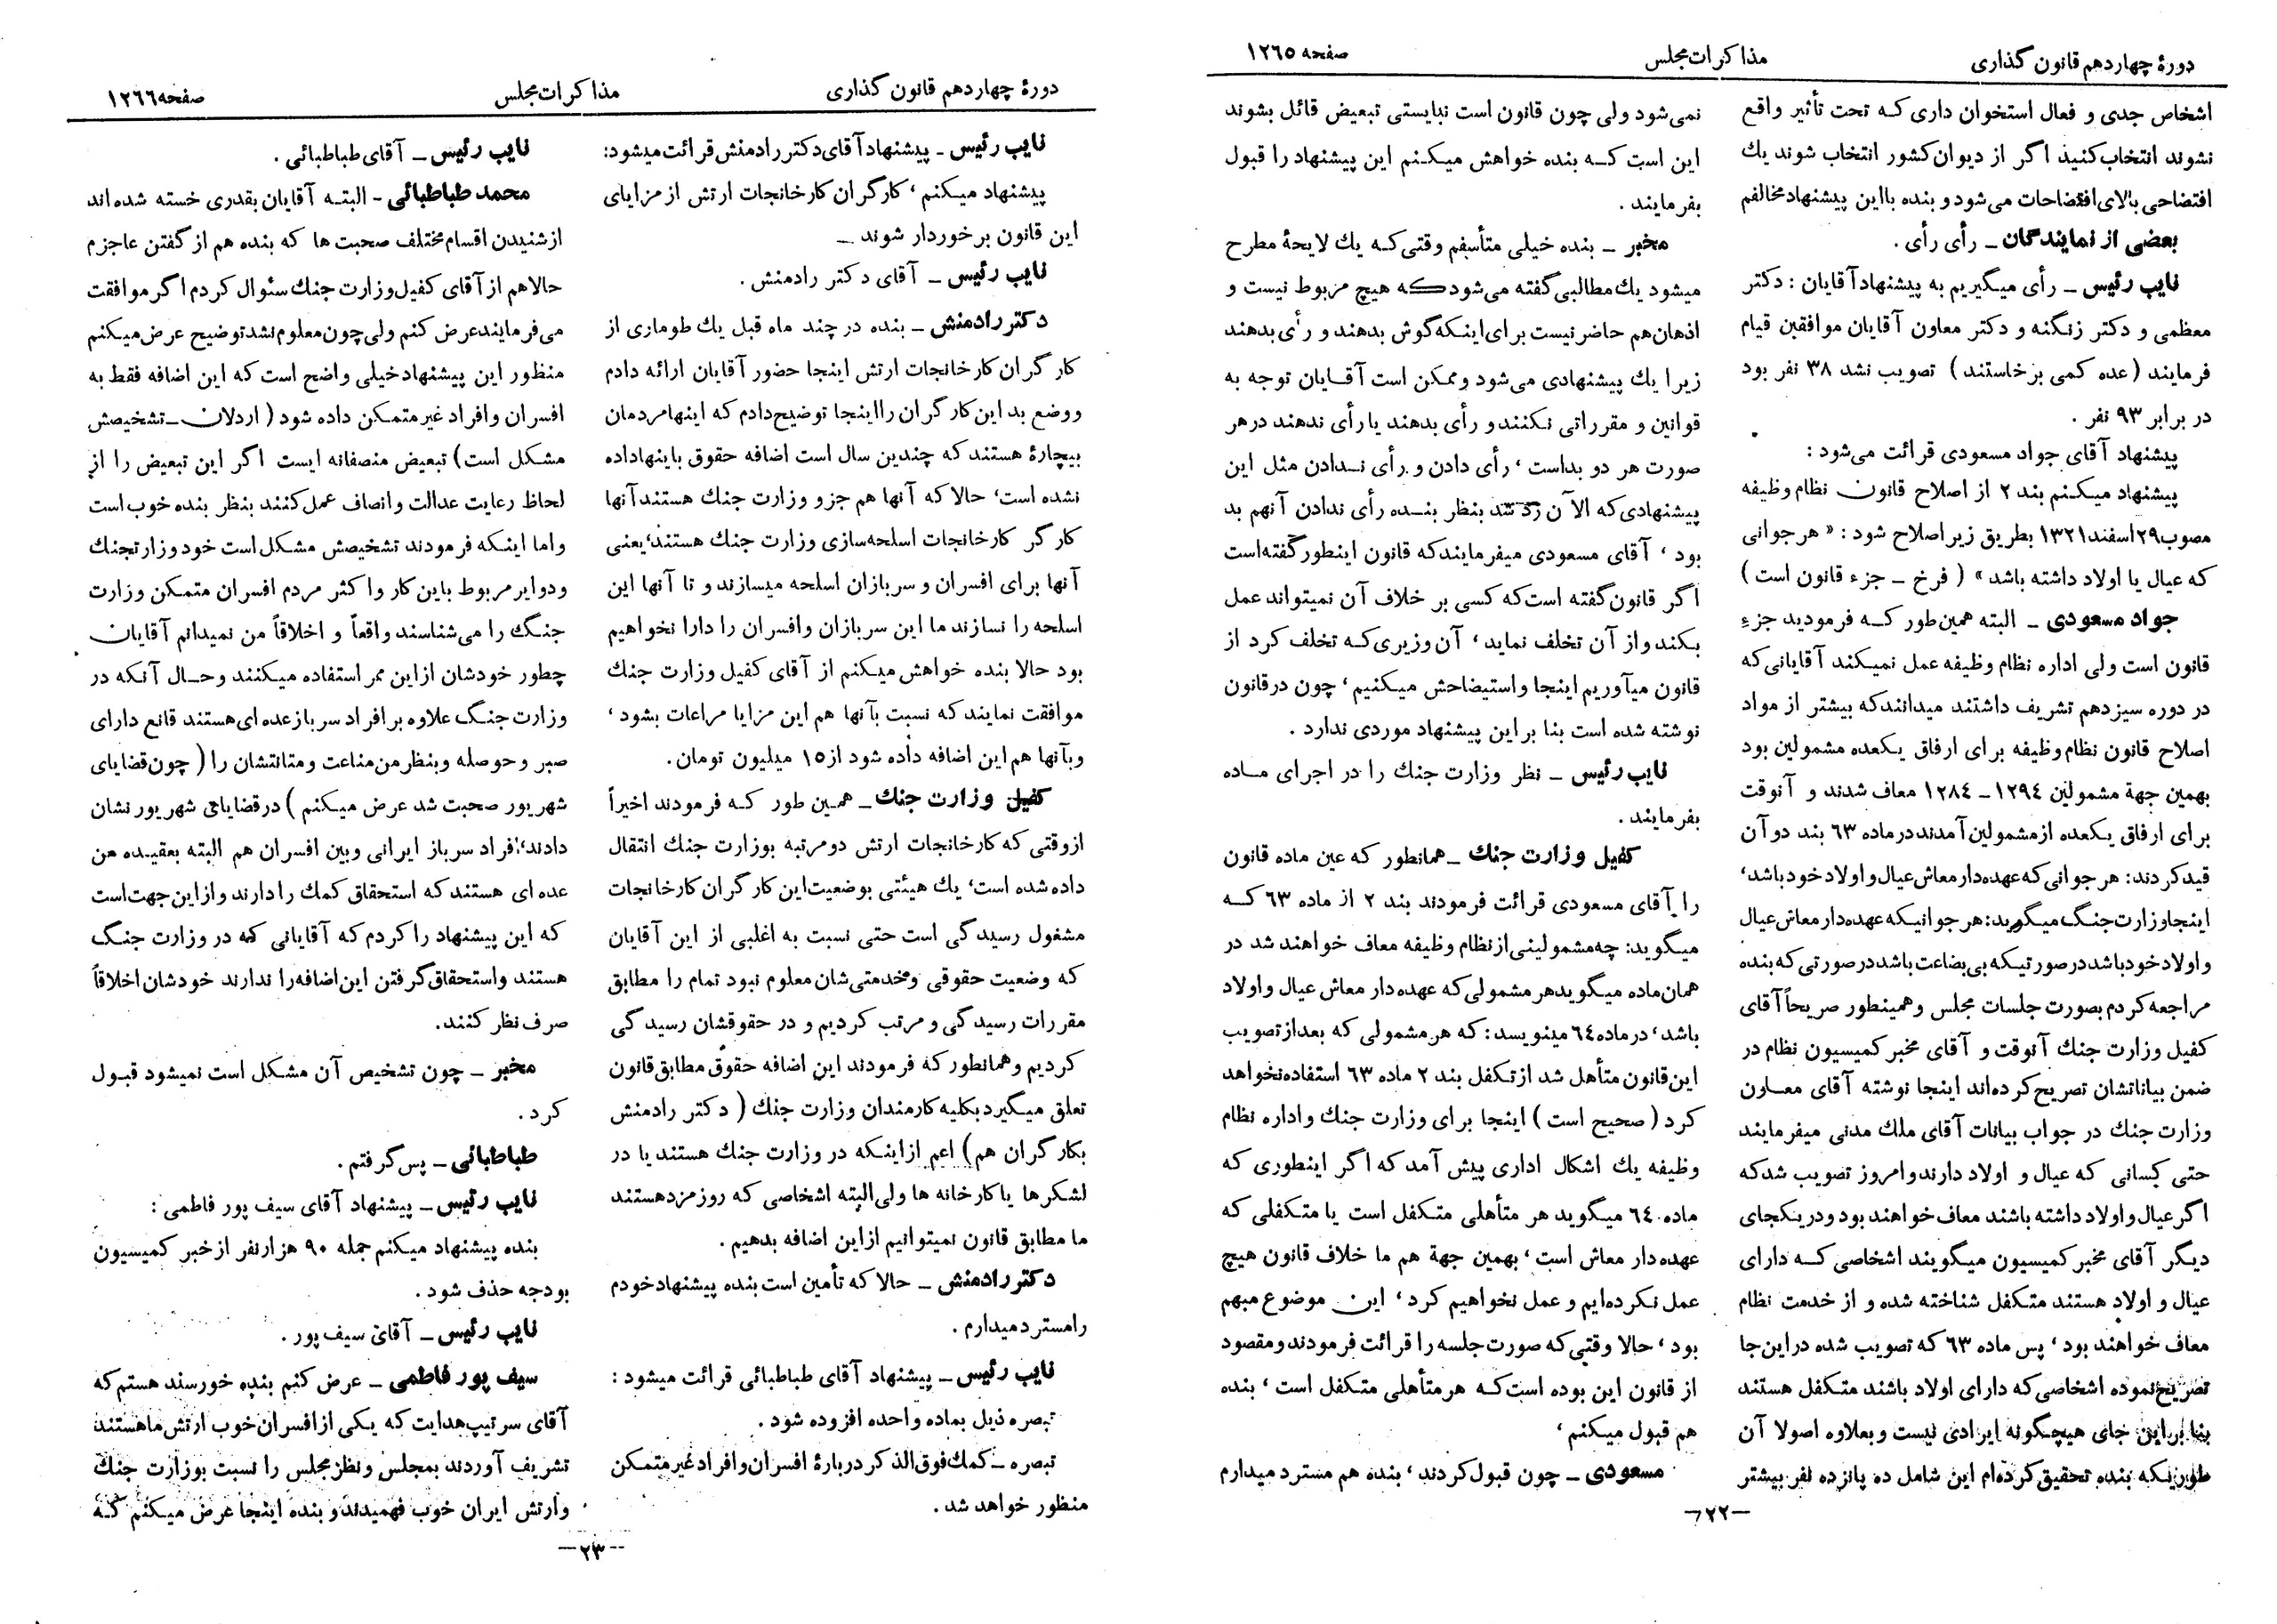 دورهٔ چهاردهم قانون گذاری
مذاکرات مجلس
صفحه ۱۲٦٥
اشخاص جدی و فعال استخوان داری که تحت تأثیر واقع
نشوند انتخاب کنید اگر از دیوان کشور انتخاب شوند یك
افتضاحی بالای افتضاحات می‌شود و بنده با این پیشنهاد مخالفم
بعضی از نمایندگان ــ رأی رأی .
نایب رئیس ــ رأی میگیریم به پیشنهاد آقایان : دکتر
معظمی و دکتر زنگنه و دکتر معاون آقایان موافقین قیام
فرمایند (عده کمی برخاستند) تصویب نشد ۳۸ نفر بود
در برابر ۹۳ نفر .
پیشنهاد آقای جواد مسعودی قرائت می‌شود :
پیشنهاد میکنم بند ۲ از اصلاح قانون نظام وظیفه
مصوب ۲۹ اسفند ۱۳۲۱ بطریق زیر اصلاح شود : « هر جوانی
که عیال یا اولاد داشته باشد » ( فرخ ــ جزء قانون است )
جواد مسعودی ــ البته همین طور که فرمودید جزء
قانون است ولی اداره نظام وظیفه عمل نمیکند آقایانی که
در دوره سیزدهم تشریف داشتند میدانند که بیشتر از مواد
اصلاح قانون نظام وظیفه برای ارفاق یکعده مشمولین بود
بهمین جهة مشمولین ۱۲۹٤ ــ ۱۲۸٤ معاف شدند و آنوقت
برای ارفاق یکعده از مشمولین آمدند در ماده ٦۳ بند دو آن
قید کردند : هر جوانی که عهده‌دار معاش عیال و اولاد خود باشد ،
اینجا وزارت جنگ میگوید : هر جوانیکه عهده‌دار معاش عیال
و اولاد خود باشد در صورتیکه بی بضاعت باشد در صورتی که بنده
مراجعه کردم بصورت جلسات مجلس و همینطور صریحاً آقای
کفیل وزارت جنك آنوقت و آقای مخبر کمیسیون نظام در
ضمن بیاناتشان تصریح کرده‌اند اینجا نوشته آقای معاون
وزارت جنك در جواب بیانات آقای ملك مدنی میفرمایند
حتی کسانی که عیال و اولاد دارند و امروز تصویب شد که
اگر عیال و اولاد داشته باشند معاف خواهند بود و در یکجای
دیگر آقای مخبر کمیسیون میگویند اشخاصی که دارای
عیال و اولاد هستند متکفل شناخته شده و از خدمت نظام
معاف خواهند بود ، پس ماده ٦۳ که تصویب شده در این جا
تصریح نموده اشخاصی که دارای اولاد باشند متکفل هستند
بنا بر این جای هیچگونه ایرادی نیست و بعلاوه اصولا آن
طوریکه بنده تحقیق کرده‌ام این شامل ده پانزده نفر بیشتر
نمی‌شود ولی چون قانون است نبایستی تبعیض قائل بشوند
این است که بنده خواهش میکنم این پیشنهاد را قبول
بفرمایند .
مخبر ــ بنده خیلی متأسفم وقتی که یك لایحهٔ مطرح
میشود یك مطالبی گفته می‌شود که هیچ مربوط نیست و
اذهان هم حاضر نیست برای اینکه گوش بدهند و رأی بدهند
زیرا یك پیشنهادی می‌شود و ممکن است آقایان توجه به
قوانین و مقرراتی نکنند و رأی بدهند یا رأی ندهند در هر
صورت هر دو بداست ، رأی دادن و رأی ندادن مثل این
پیشنهادی که الآن رد شد بنظر بنده رأی ندادن آنهم بد
بود ، آقای مسعودی میفرمایند که قانون اینطور گفته است
اگر قانون گفته است که کسی بر خلاف آن نمیتواند عمل
بکند و از آن تخلف نماید ، آن وزیری که تخلف کرد از
قانون میآوریم اینجا و استیضاحش میکنیم ، چون در قانون
نوشته شده است بنا بر این پیشنهاد موردی ندارد .
نایب رئیس ــ نظر وزارت جنك را در اجرای ماده
بفرمایند .
کفیل وزارت جنك ــ همانطور که عین ماده قانون
را آقای مسعودی قرائت فرمودند بند ۲ از ماده ٦۳ که
میگوید : چه مشمولینی از نظام وظیفه معاف خواهند شد در
همان ماده میگوید هر مشمولی که عهده‌دار معاش عیال و اولاد
باشد ، در ماده ٦٤ مینویسد : که هر مشمولی که بعد از تصویب
این قانون متأهل شد از تکفل بند ۲ ماده ٦۳ استفاده نخواهد
کرد ( صحیح است ) اینجا برای وزارت جنك و اداره نظام
وظیفه یك اشکال اداری پیش آمد که اگر اینطوری که
ماده ٦٤ میگوید هر متأهلی متکفل است یا متکفلی که
عهده‌دار معاش است ، بهمین جهة هم ما خلاف قانون هیچ
عمل نکرده‌ایم و عمل نخواهیم کرد ، این موضوع مبهم
بود ، حالا وقتی که صورت جلسه را قرائت فرمودند و مقصود
از قانون این بوده است که هر متأهلی متکفل است ، بنده
هم قبول میکنم ،
مسعودی ــ چون قبول کردند ، بنده هم مسترد میدارم
ــ۲۲ــ
دورهٔ چهاردهم قانون گذاری
مذاکرات مجلس
صفحه ۱۲٦٦
نایب رئیس ــ پیشنهاد آقای دکتر رادمنش قرائت میشود :
پیشنهاد میکنم ، کارگران کارخانجات ارتش از مزایای
این قانون برخوردار شوند ــ
نایب رئیس ــ آقای دکتر رادمنش .
دکتر رادمنش ــ بنده در چند ماه قبل یك طوماری از
کارگران کارخانجات ارتش اینجا حضور آقایان ارائه دادم
و وضع بد این کارگران را اینجا توضیح دادم که اینها مردمان
بیچارهٔ هستند که چندین سال است اضافه حقوق باینها داده
نشده است ، حالا که آنها هم جزو وزارت جنك هستند آنها
کارگر کارخانجات اسلحه‌سازی وزارت جنك هستند ، یعنی
آنها برای افسران و سربازان اسلحه میسازند و تا آنها این
اسلحه را نسازند ما این سربازان و افسران را دارا نخواهیم
بود حالا بنده خواهش میکنم از آقای کفیل وزارت جنك
موافقت نمایند که نسبت بآنها هم این مزایا مراعات بشود ،
و بآنها هم این اضافه داده شود از ۱۵ میلیون تومان .
کفیل وزارت جنك ــ همین طور که فرمودند اخیراً
از وقتی که کارخانجات ارتش دو مرتبه بوزارت جنك انتقال
داده شده است ، یك هیئتی بوضعیت این کارگران کارخانجات
مشغول رسیدگی است حتی نسبت به اغلبی از این آقایان
که وضعیت حقوقی و خدمتی‌شان معلوم نبود تمام را مطابق
مقررات رسیدگی و مرتب کردیم و در حقوقشان رسیدگی
کردیم و همانطور که فرمودند این اضافه حقوق مطابق قانون
تعلق میگیرد بکلیه کارمندان وزارت جنك ( دکتر رادمنش
بکارگران هم ) اعم از اینکه در وزارت جنك هستند یا در
لشکرها یا کارخانه ها ولی البته اشخاصی که روز مزد هستند
ما مطابق قانون نمیتوانیم از این اضافه بدهیم .
دکتر رادمنش ــ حالا که تأمین است بنده پیشنهاد خودم
را مسترد میدارم .
نایب رئیس ــ پیشنهاد آقای طباطبائی قرائت میشود :
تبصره ذیل بماده واحده افزوده شود .
تبصره ــ کمك فوق الذکر دربارهٔ افسران و افراد غیر متمکن
منظور خواهد شد .
نایب رئیس ــ آقای طباطبائی .
محمد طباطبائی ــ البته آقایان بقدری خسته شده‌اند
از شنیدن اقسام مختلف صحبت ها که بنده هم از گفتن عاجزم
حالا هم از آقای کفیل وزارت جنك سئوال کردم اگر موافقت
می‌فرمایند عرض کنم ولی چون معلوم نشد توضیح عرض میکنم
منظور این پیشنهاد خیلی واضح است که این اضافه فقط به
افسران و افراد غیر متمکن داده شود ( اردلان ــ تشخیصش
مشکل است ) تبعیض منصفانه ایست اگر این تبعیض را از
لحاظ رعایت عدالت و انصاف عمل کنند بنظر بنده خوب است
و اما اینکه فرمودند تشخیصش مشکل است خود وزارتجنك
و دوایر مربوط باین کار و اکثر مردم افسران متمکن وزارت
جنگ را می‌شناسند واقعاً و اخلاقاً من نمیدانم آقایان
چطور خودشان از این ممر استفاده میکنند و حال آنکه در
وزارت جنگ علاوه بر افراد سرباز عده ای هستند قانع دارای
صبر و حوصله و بنظر من مناعت و متانتشان را ( چون قضایای
شهریور صحبت شد عرض میکنم ) در قضایای شهریور نشان
دادند ، افراد سرباز ایرانی و بین افسران هم البته بعقیده من
عده ای هستند که استحقاق کمك را دارند و از این جهت است
که این پیشنهاد را کردم که آقایانی که در وزارت جنگ
هستند و استحقاق گرفتن این اضافه را ندارند خودشان اخلاقاً
صرف نظر کنند .
مخبر ــ چون تشخیص آن مشکل است نمیشود قبول
کرد .
طباطبائی ــ پس گرفتم .
نایب رئیس ــ پیشنهاد آقای سیف پور فاطمی :
بنده پیشنهاد میکنم جمله ۹۰ هزار نفر از خبر کمیسیون
بودجه حذف شود .
نایب رئیس ــ آقای سیف پور .
سیف پور فاطمی ــ عرض کنم بنده خورسند هستم که
آقای سرتیپ هدایت که یکی از افسران خوب ارتش ما هستند
تشریف آوردند بمجلس و نظر مجلس را نسبت بوزارت جنك
و ارتش ایران خوب فهمیدند و بنده اینجا عرض میکنم که
ــ۲۳ــ